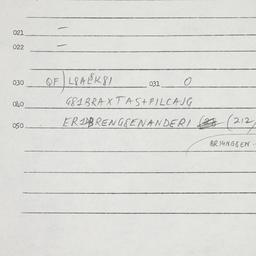 021 —
022 —
030 QF) L8A£K81 031 O
040 G81BRAXTAS+PILCAJG
050 ER1BRENG8ENANDERI (212
BR14NG8EN